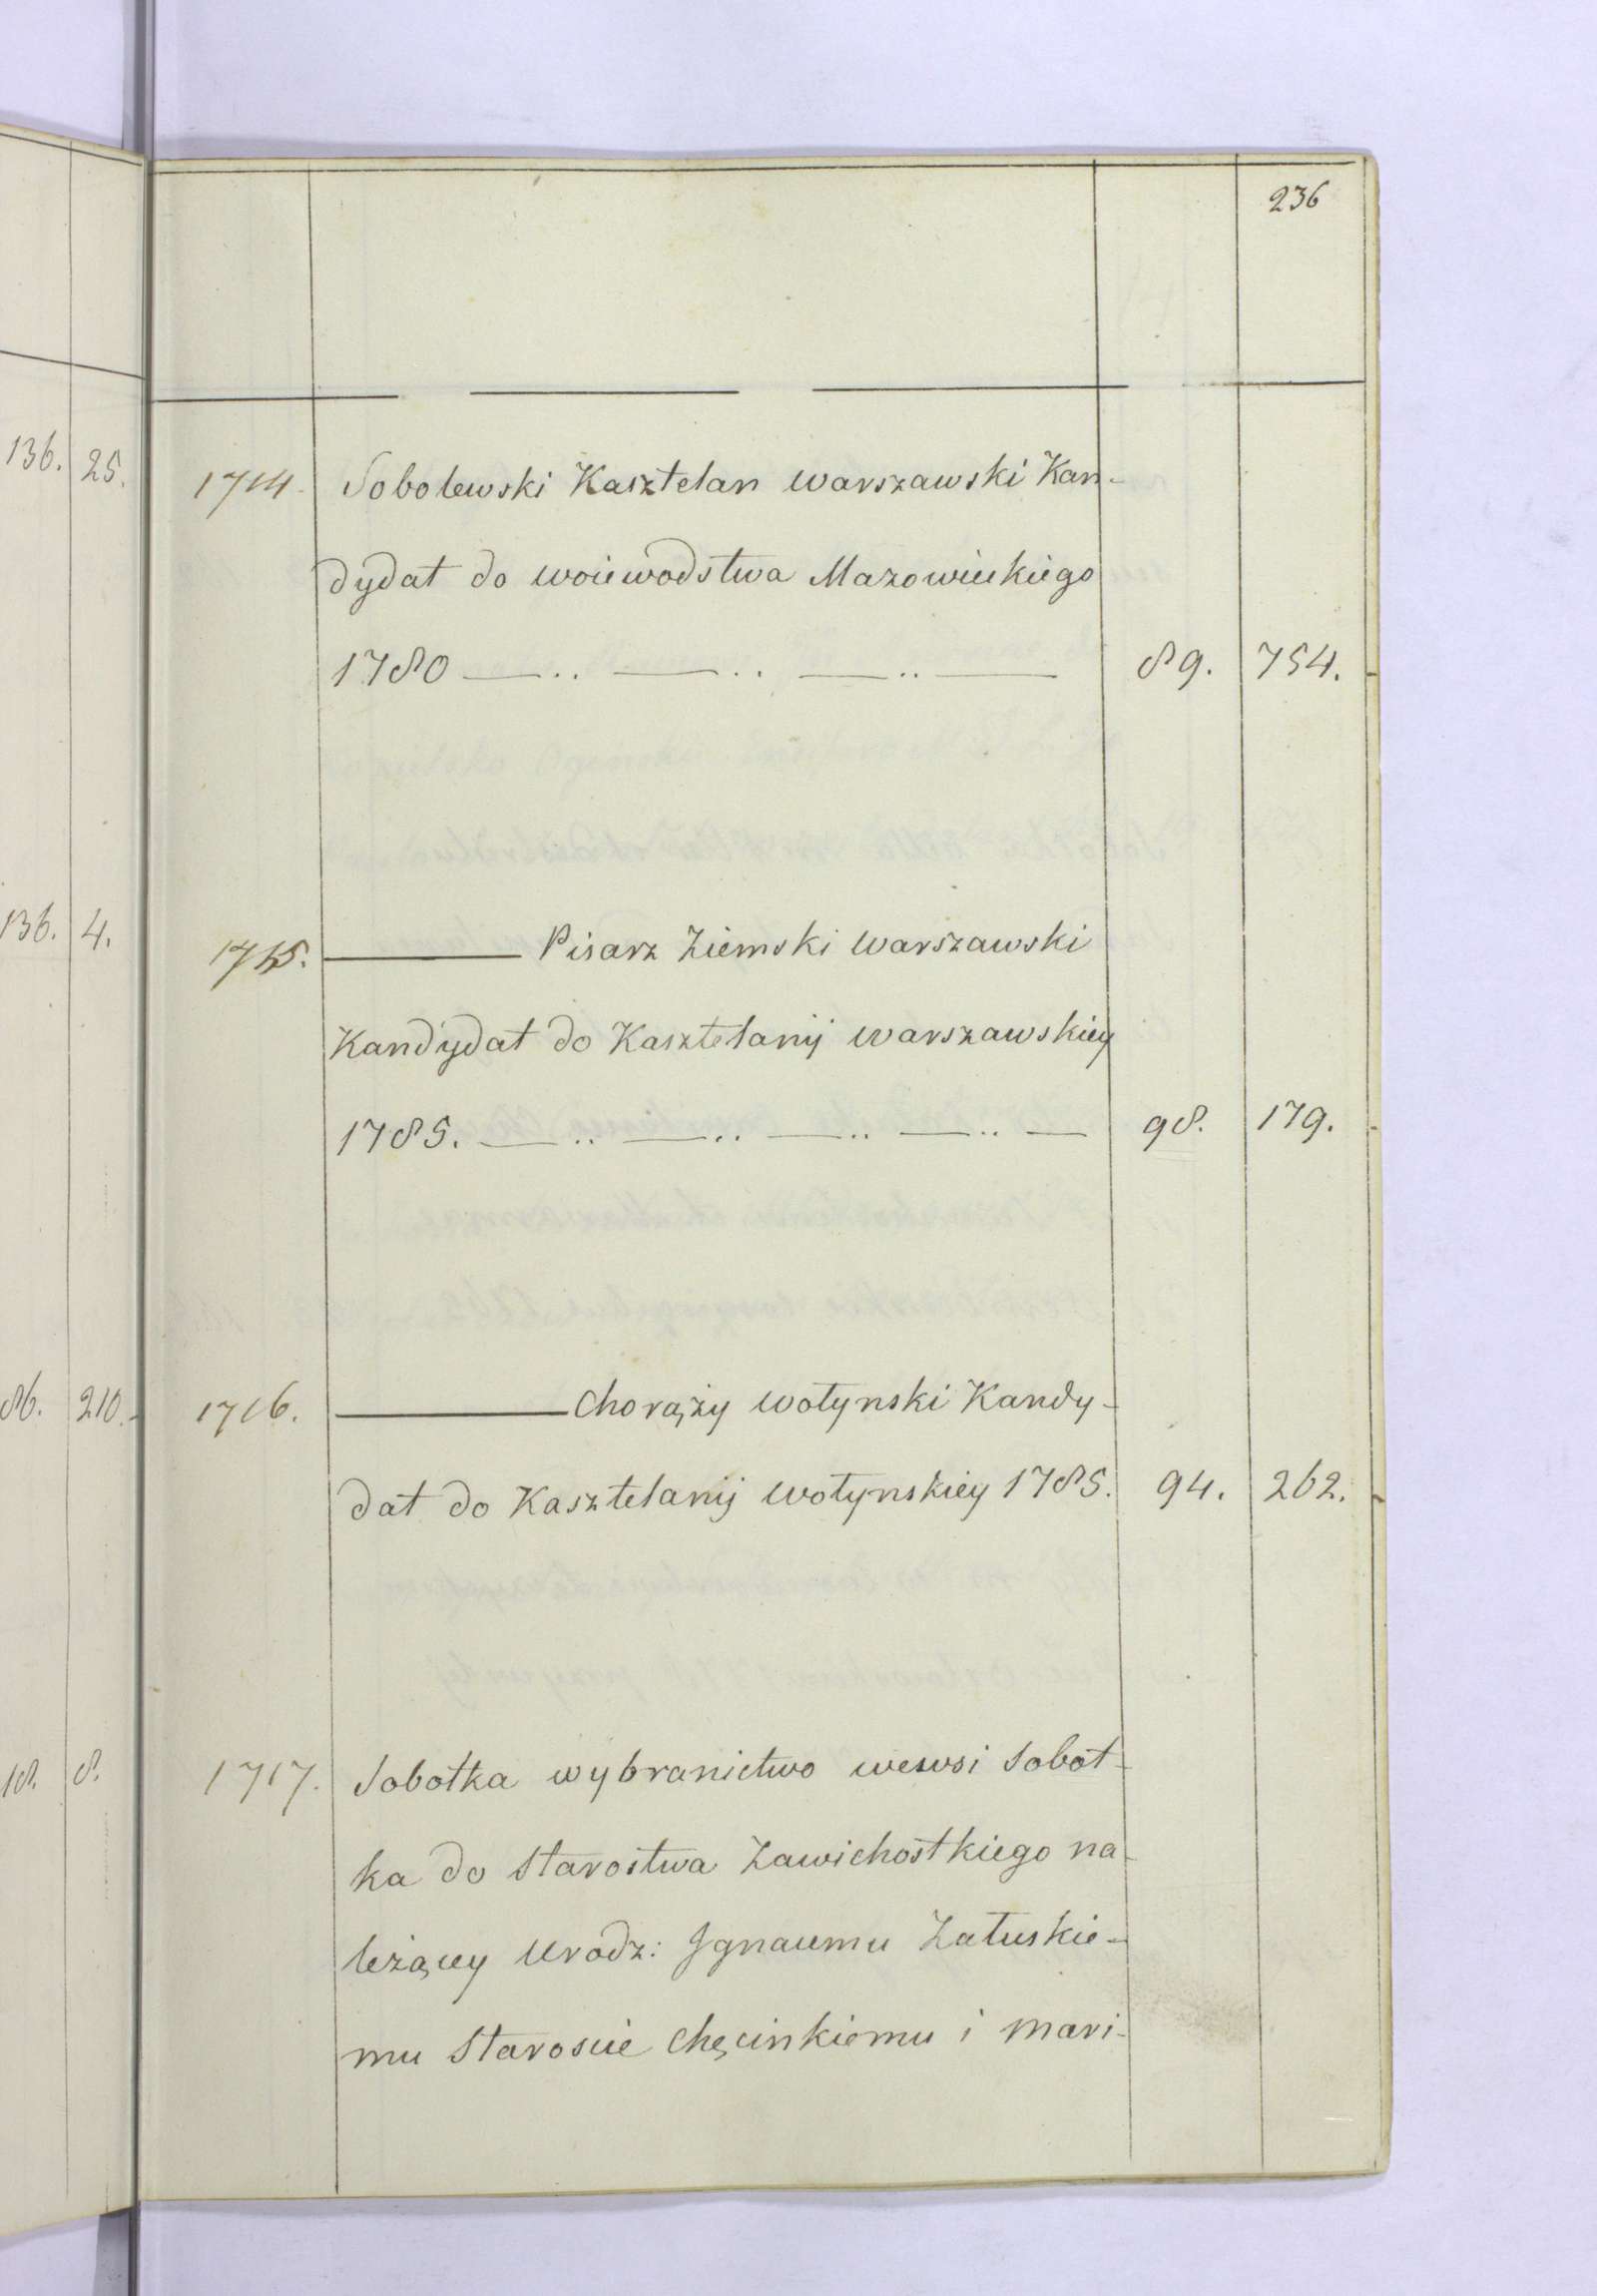 236
136. 25.
1714. Sobolewski Kasztelan warszawski Kan-
dydat do woiewodstwa Mazowieckiego
1780 —.. —.. —.. — 89. 754.
136. 4.
1715. ——— Pisarz Ziemski warszawski
Kandydat do Kasztelanij warszawskiey
1785. —.. —.. —.. —.. — 98. 179.
86. 210.
1716. ——— Chorąży wołynski Kandy-
dat do Kasztelanij wołynskiey 1785. 94. 262.
18. 8.
1717. Sobotka wybranictwo wewsi Sobot-
ka do Starostwa Zawichostkiego na-
leżącey Urodz: Ignacemu Załuskie-
mu Staroscie Chęcinkiemu i Mari-